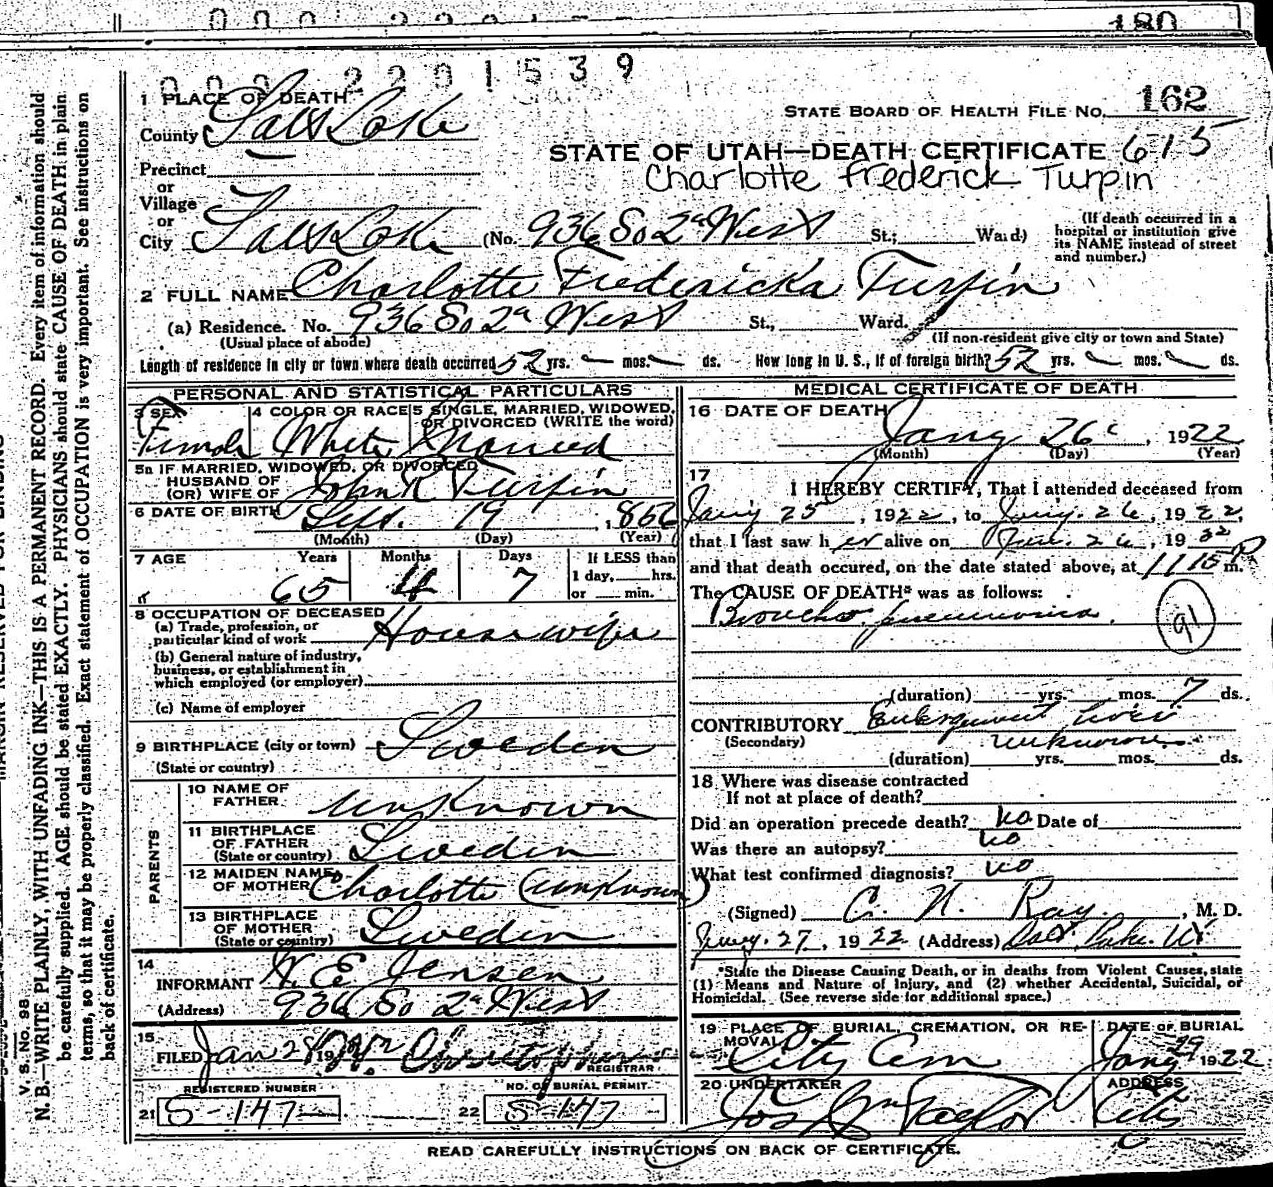 180
000 2201539
1 PLACE OF DEATH
STATE BOARD OF HEALTH FILE NO. 162
County Salt Lake
STATE OF UTAH—DEATH CERTIFICATE 615
Precinct
Charlotte Frederick Turpin
or
Village
or
City Salt Lake (No. 936 So 2d West St.; Ward)
(If death occurred in a hospital or institution give its NAME instead of street and number.)
2 FULL NAME Charlotte Fredericka Turpin
(a) Residence. No. 936 So 2d West St., Ward.
(Usual place of abode) (If non-resident give city or town and State)
Length of residence in city or town where death occurred 52 yrs. – mos. – ds. How long in U. S., if of foreign birth? 52 yrs. – mos. – ds.
PERSONAL AND STATISTICAL PARTICULARS
3 SEX 4 COLOR OR RACE 5 SINGLE, MARRIED, WIDOWED, OR DIVORCED (WRITE the word)
Female White Married
5a IF MARRIED, WIDOWED, OR DIVORCED
HUSBAND OF
(OR) WIFE OF John R Turpin
6 DATE OF BIRTH Sept. 19, 1856
(Month) (Day) (Year)
7 AGE Years Months Days If LESS than
65 4 7 1 day, hrs.
or min.
8 OCCUPATION OF DECEASED
(a) Trade, profession, or
particular kind of work Housewife
(b) General nature of industry,
business, or establishment in
which employed (or employer)
(c) Name of employer
9 BIRTHPLACE (city or town) Sweden
(State or country)
PARENTS
10 NAME OF
FATHER unknown
11 BIRTHPLACE
OF FATHER Sweden
(State or country)
12 MAIDEN NAME
OF MOTHER Charlotte (unknown)
13 BIRTHPLACE
OF MOTHER Sweden
(State or country)
14
INFORMANT N. E. Jensen
(Address) 936 So 2d West
15
FILED Jan 28 19
REGISTRAR
REGISTERED NUMBER NO. OF BURIAL PERMIT
21 S-147 22 S-147
MEDICAL CERTIFICATE OF DEATH
16 DATE OF DEATH
Jany 26, 1922
(Month) (Day) (Year)
17
I HEREBY CERTIFY, That I attended deceased from
Jany 25, 1922, to Jany. 26, 1922,
that I last saw her alive on Jan. 26, 1922
and that death occured, on the date stated above, at 11 15 P m.
The CAUSE OF DEATH* was as follows:
Broncho pneumonia. 91
(duration) yrs. mos. 7 ds.
CONTRIBUTORY
(Secondary) unknown
(duration) yrs. mos. ds.
18 Where was disease contracted
If not at place of death?
Did an operation precede death? no Date of
Was there an autopsy? no
What test confirmed diagnosis? no
(Signed) C. N. Ray, M. D.
Jany. 27, 1922 (Address) Salt Lake. Ut.
*State the Disease Causing Death, or in deaths from Violent Causes, state
(1) Means and Nature of Injury, and (2) whether Accidental, Suicidal, or
Homicidal. (See reverse side for additional space.)
19 PLACE OF BURIAL, CREMATION, OR RE- DATE OF BURIAL
MOVAL
City Cem Jany 29 1922
20 UNDERTAKER ADDRESS
Jos Wm Taylor City
READ CAREFULLY INSTRUCTIONS ON BACK OF CERTIFICATE.
V. S. No. 98
MARGIN RESERVED FOR BINDING
N. B.—WRITE PLAINLY, WITH UNFADING INK—THIS IS A PERMANENT RECORD. Every item of information should
be carefully supplied. AGE should be stated EXACTLY. PHYSICIANS should state CAUSE OF DEATH in plain
terms, so that it may be properly classified. Exact statement of OCCUPATION is very important. See instructions on
back of certificate.